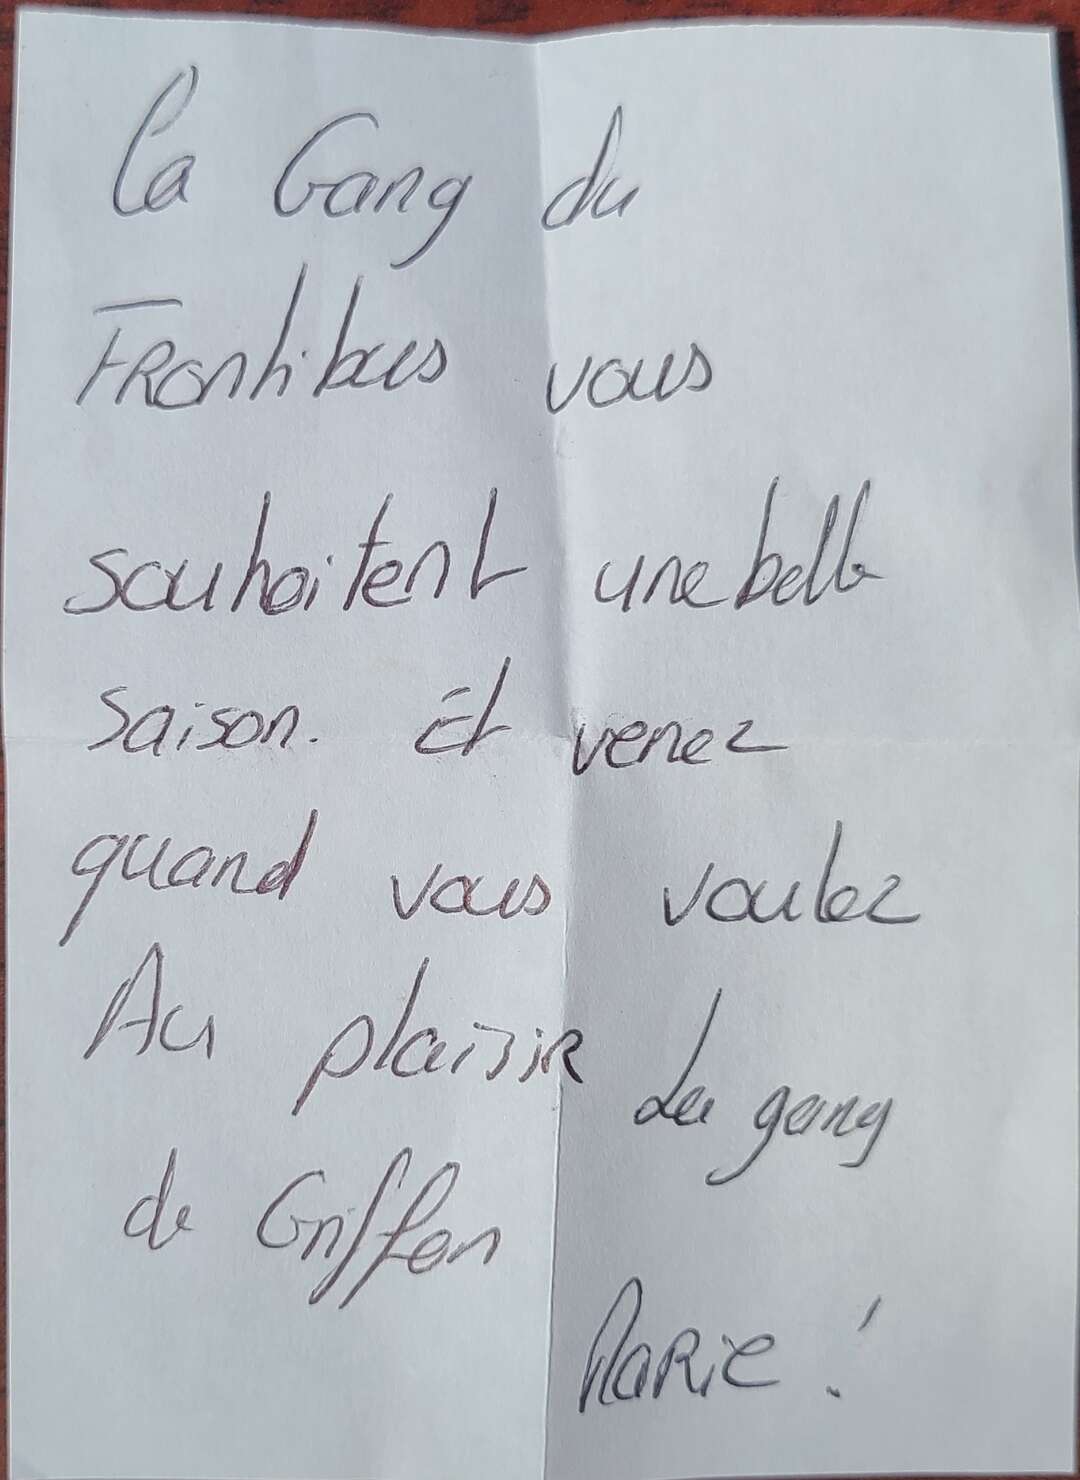 La Gang du
FRontibus vous
souhaitent une belle
saison. Et venez
quand vous voulez
Au plaisiR La gang
de Griffon
MaRie !